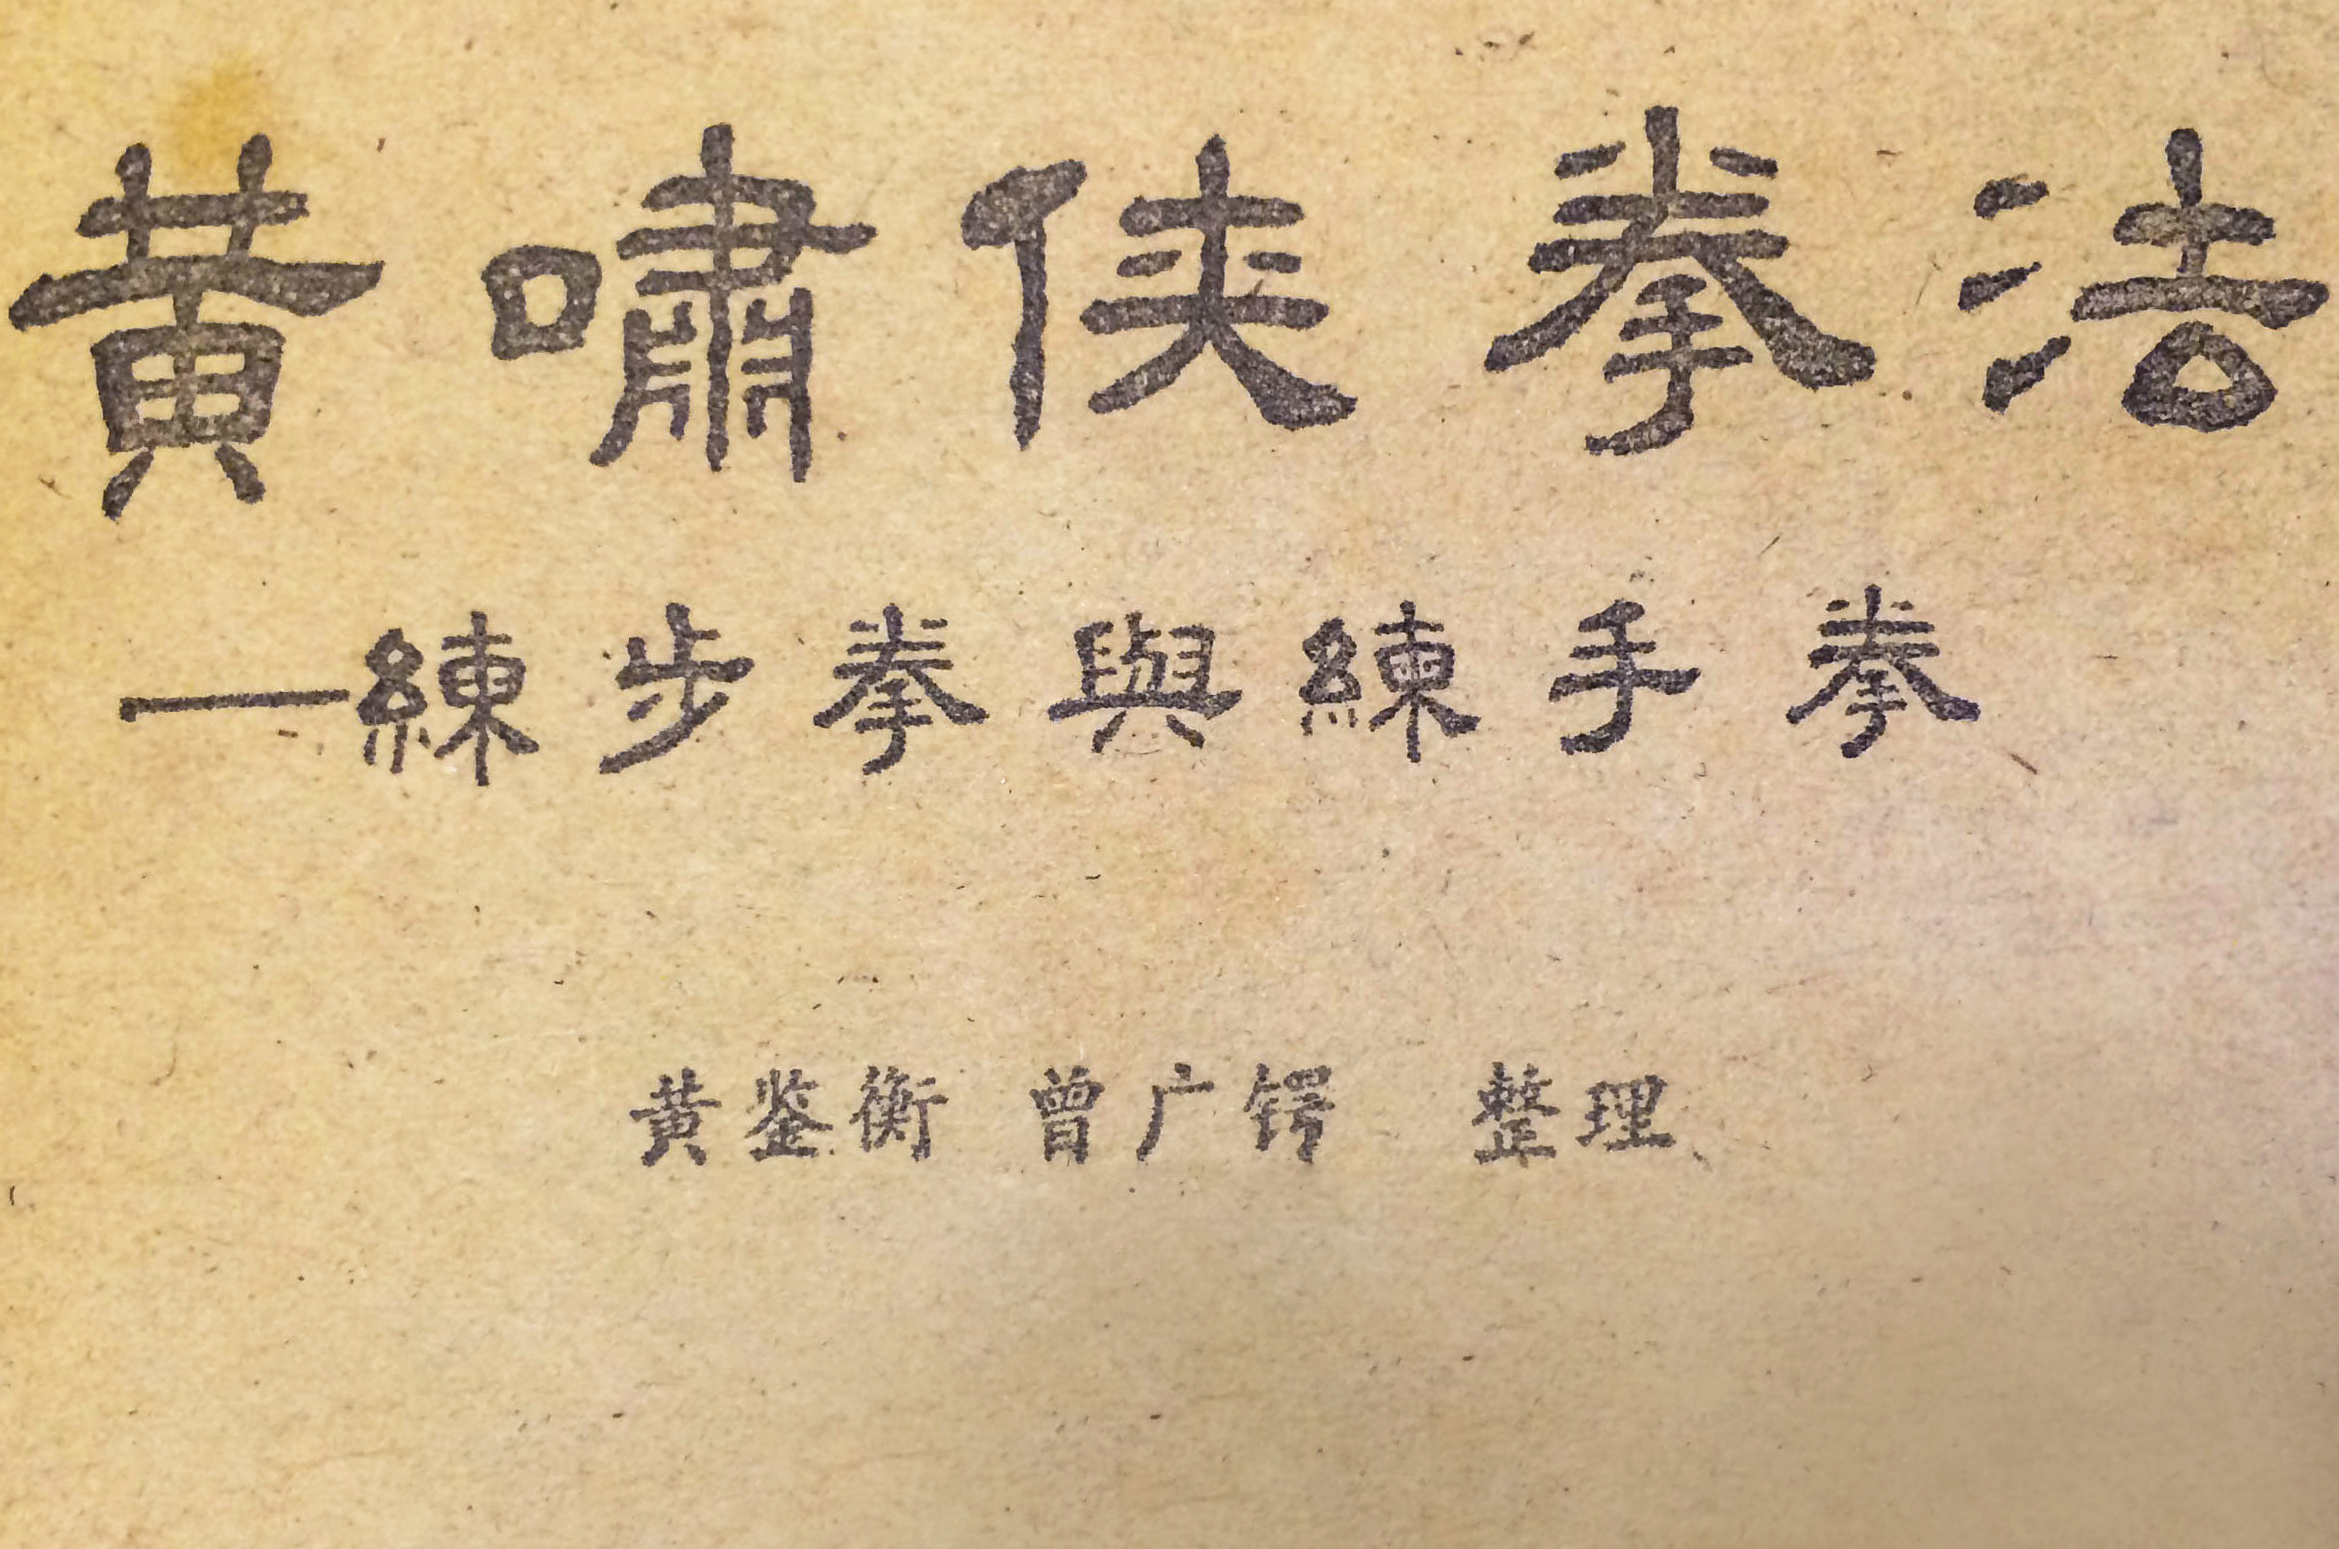 黄嘯俠拳法
—練步拳與練手拳
黄鉴衡 曾广锷 整理